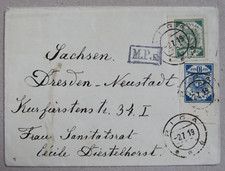 Sachsen.
M.P.
Dresden-Neustadt
Kurfürstenstr. 34. I
Frau Sanitätsrat
Cecile Diestelhorst.
RIGA
-2.7 19